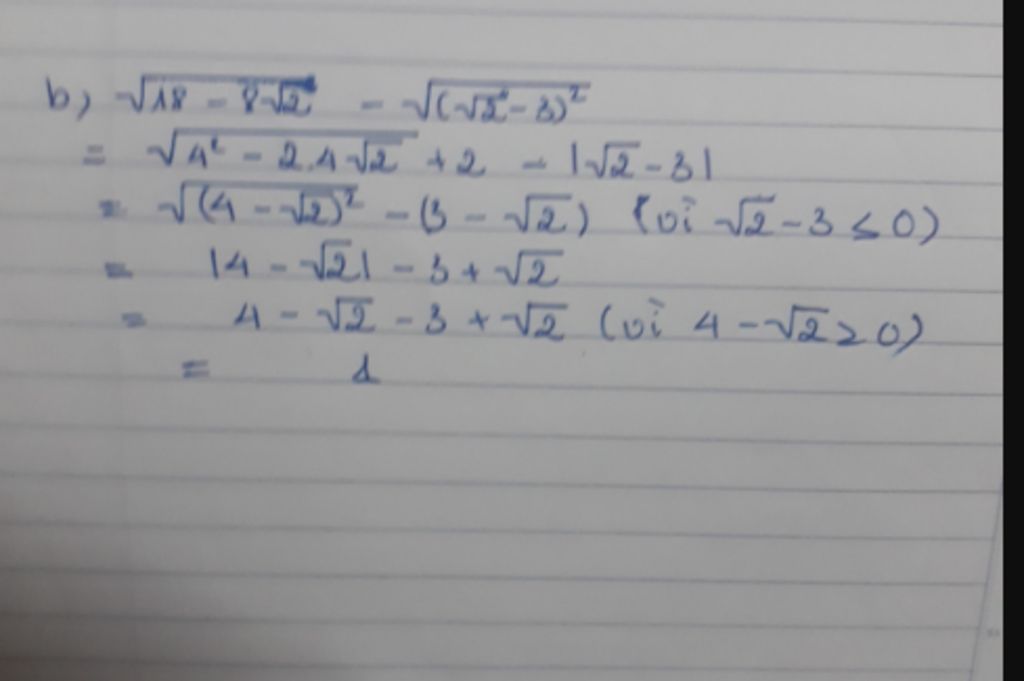 b) √(18 - 8√2) - √((√2 - 3)²)
= √(4² - 2.4√2) + 2 - |√2 - 3|
= √((4 - √2)²) - (3 - √2) (vì √2 - 3 ≤ 0)
= |4 - √2| - 3 + √2
= 4 - √2 - 3 + √2 (vì 4 - √2 ≥ 0)
= 1